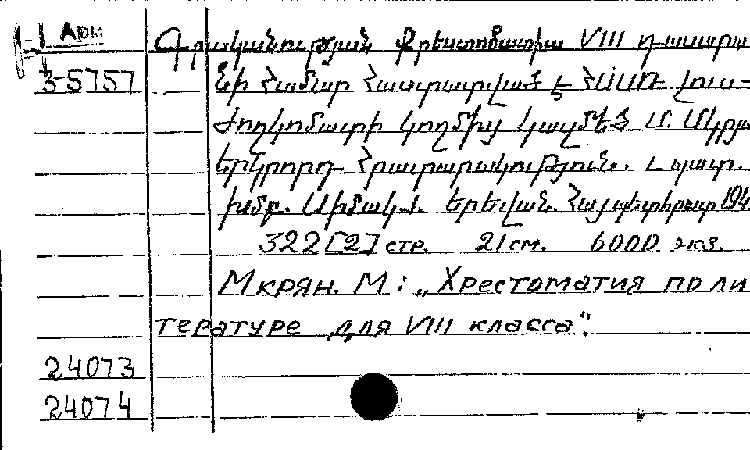 Арм
Գրականության Քրեստոմատիա VIII դասարա
3-5757 նի համար հաստատված է ՀՍՍՌ լուս-
ժողկոմատի կողմից կազմեց Մ. Մկրյա
երկրորդ հրատարակություն. պատ.
խմբ. Սիմակ Ս. Երևան. Հայպետհրատ 194
322 [2] стр. 21 см. 6000 экз.
Мкрян. М: „Хрестоматия по ли
тературе для VIII класса".
24073
24074